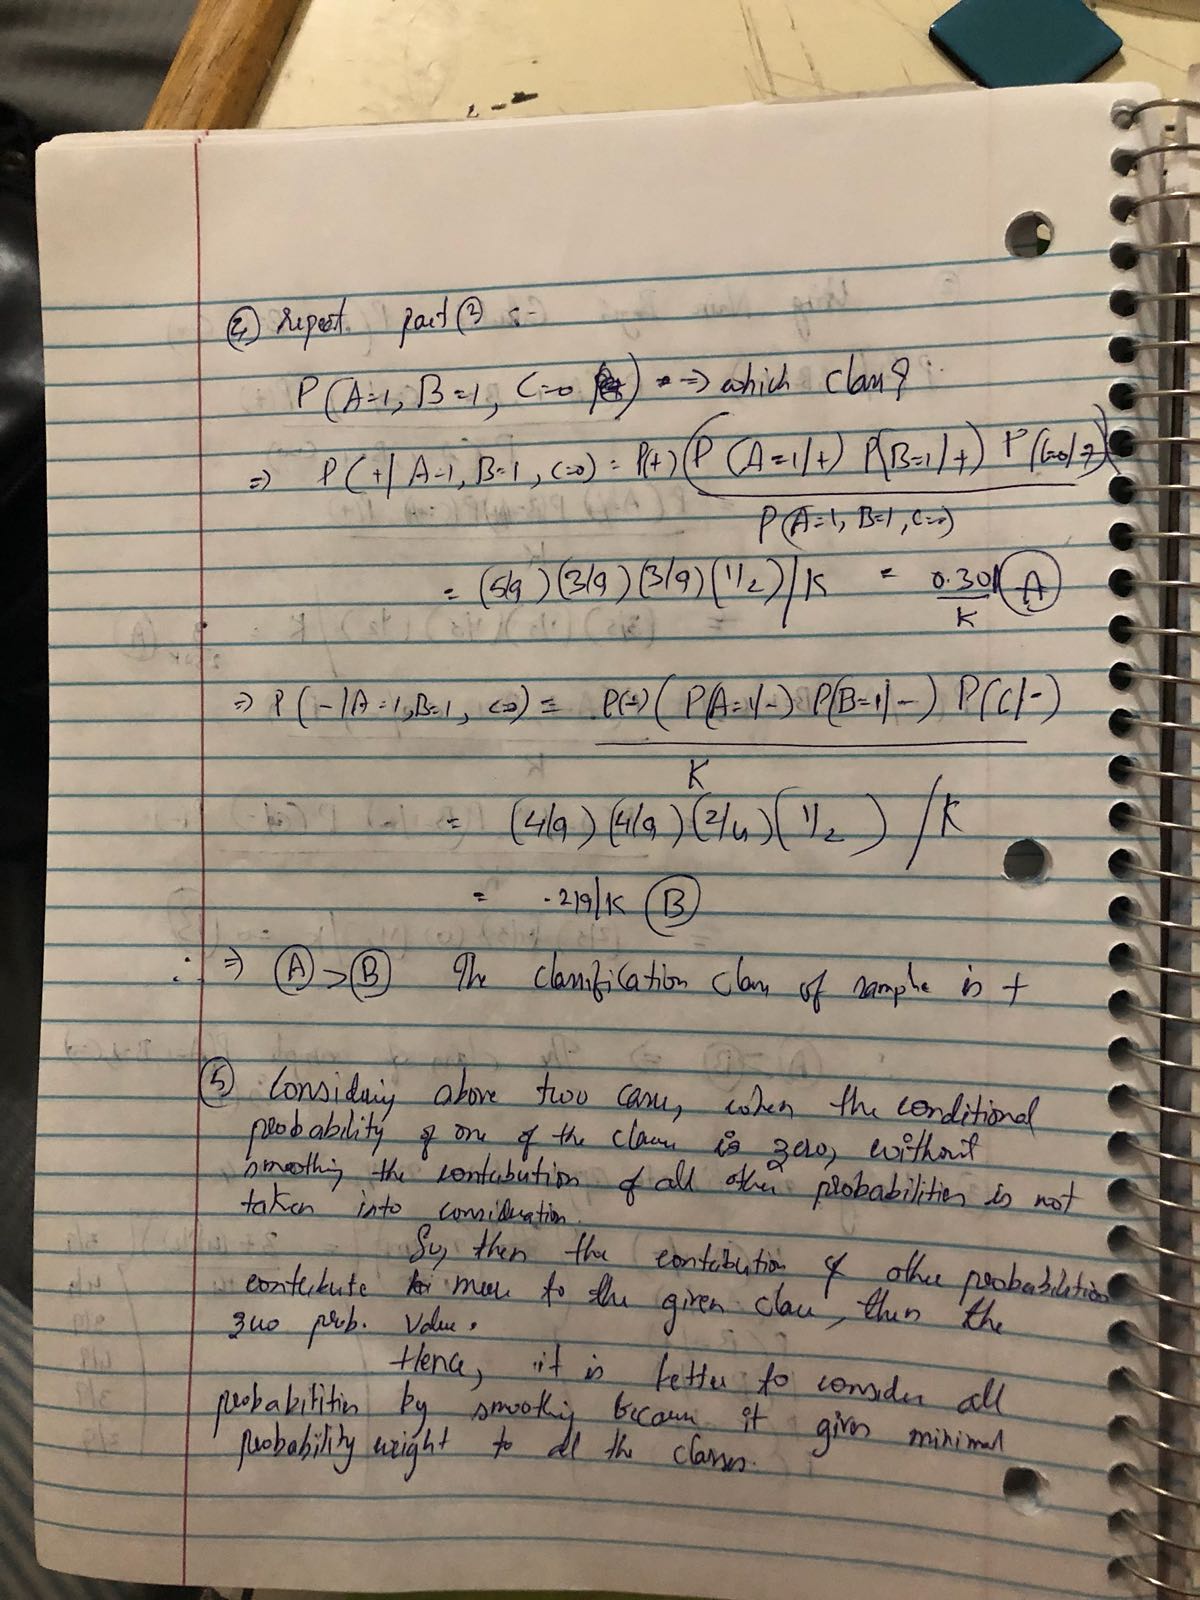 ④ repeat part ③ :-
P(A=1, B=1, C=0) => which class?
=> P(+|A=1, B=1, C=0) = P(+) (P(A=1|+) P(B=1|+) P(C=0|+))
P(A=1, B=1, C=0)
= (5/9)(3/9)(3/9)(1/2)/K = 0.301 Ⓐ
K
=> P(-|A=1, B=1, C=0) = P(-) (P(A=1|-) P(B=1|-) P(C|-)
K
= (4/9)(4/9)(2/4)(1/2) /K
= .219/K Ⓑ
∴ => Ⓐ > Ⓑ The classification class of sample is +
⑤ Considering above two cases, when the conditional
probability of one of the classes is zero, without
smoothing the contribution of all other probabilities is not
taken into consideration.
So, then the contribution of other probabilities
contribute more to the given class, then the
zero prob. value.
Hence, it is better to consider all
probabilities by smoothing because it gives minimal
probability weight to all the classes.